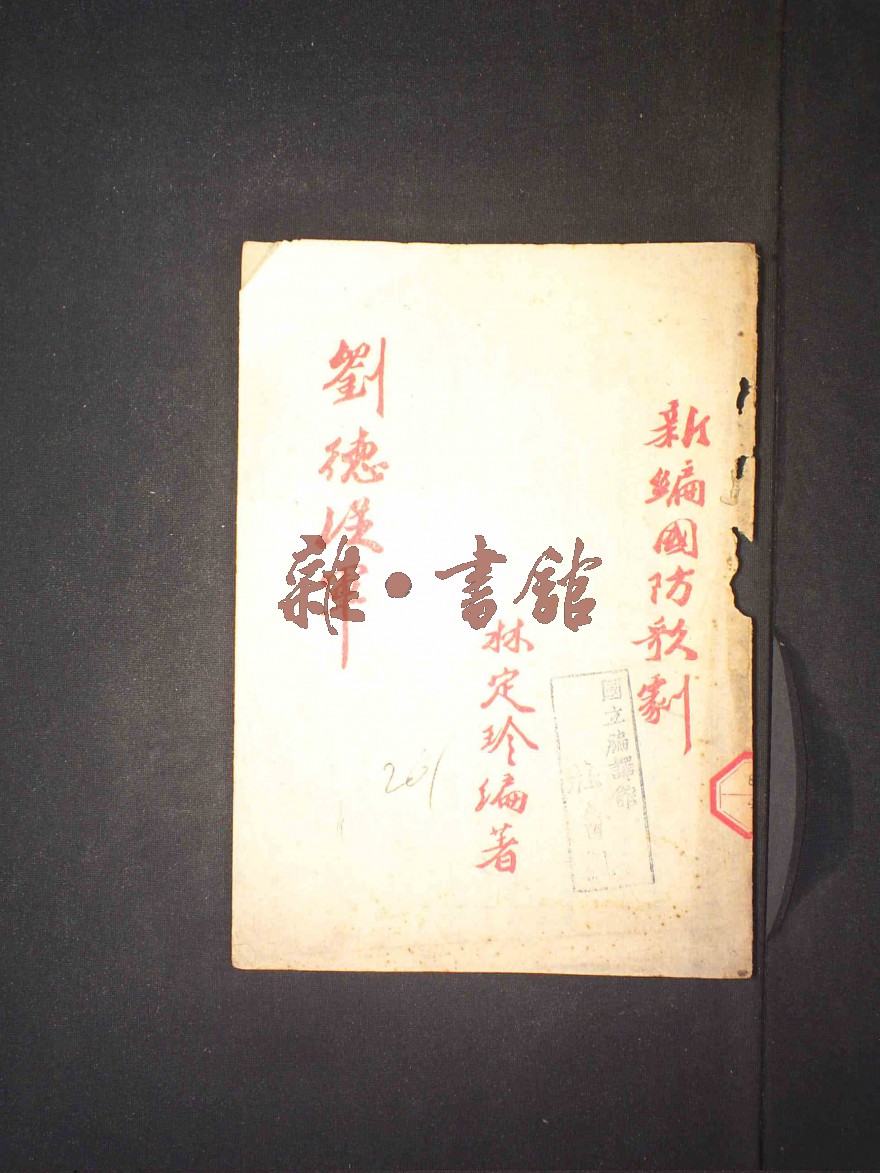 新編國防歌劇
林定珍編著
劉德從軍
雜·書館
國立編譯館
201